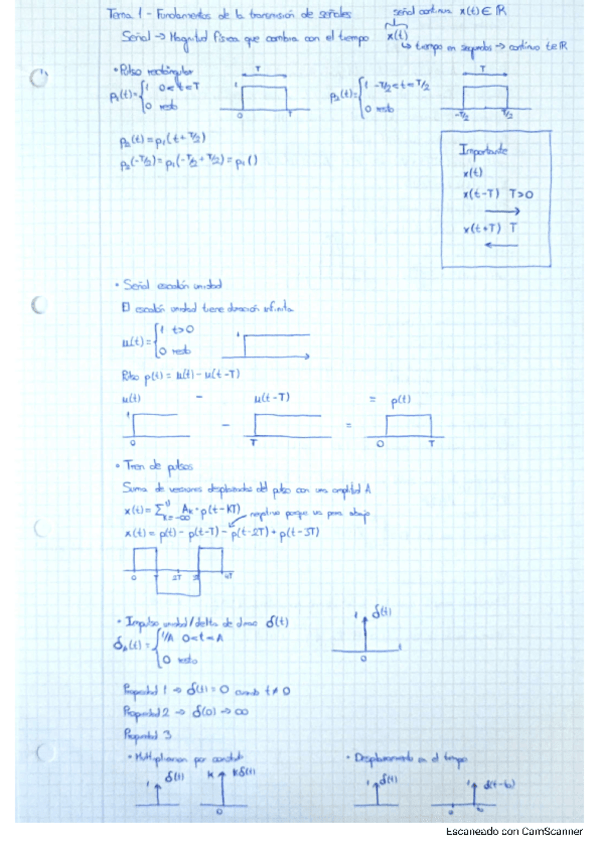 Tema 1 - Fundamentos de la transmisión de señales
señal continua x(t) ∈ ℝ
Señal → Magnitud física que cambia con el tiempo x(t)
↳ tiempo en segundos → continuo t∈ℝ
• Pulso rectangular
p₁(t)={1 0<t<T
0 resto
T
1
0 T
p₂(t)={1 -T/2<t<T/2
0 resto
T
-T/2 T/2
p₂(t)=p₁(t+T/2)
p₂(-T/2)=p₁(-T/2+T/2)=p₁()
Importante
x(t)
x(t-T) T>0
x(t+T) T
• Señal escalón unidad
El escalón unidad tiene duración infinita
u(t)={1 t>0
0 resto
1
Pulso p(t)=u(t)-u(t-T)
u(t) - u(t-T) = p(t)
1 - =
0 T 0 T
• Tren de pulsos
Suma de versiones desplazadas del pulso con una amplitud A
x(t)=∑ k=-∞ Aₖ·p(t-KT) negativo porque va para abajo
x(t)=p(t)-p(t-T)-p(t-2T)+p(t-3T)
0 T 2T 4T
• Impulso unidad/delta de dirac δ(t)
δ_A(t)={1/A 0<t<A
0 resto
1 δ(t)
t
0
Propiedad 1 → δ(t)=0 cuando t≠0
Propiedad 2 → δ(0)→∞
Propiedad 3
• Multiplicacion por constante
• Desplazamiento en el tiempo
1 δ(t) K Kδ(t)
0
1 δ(t) δ(t-t₀)
0 t₀
Escaneado con CamScanner